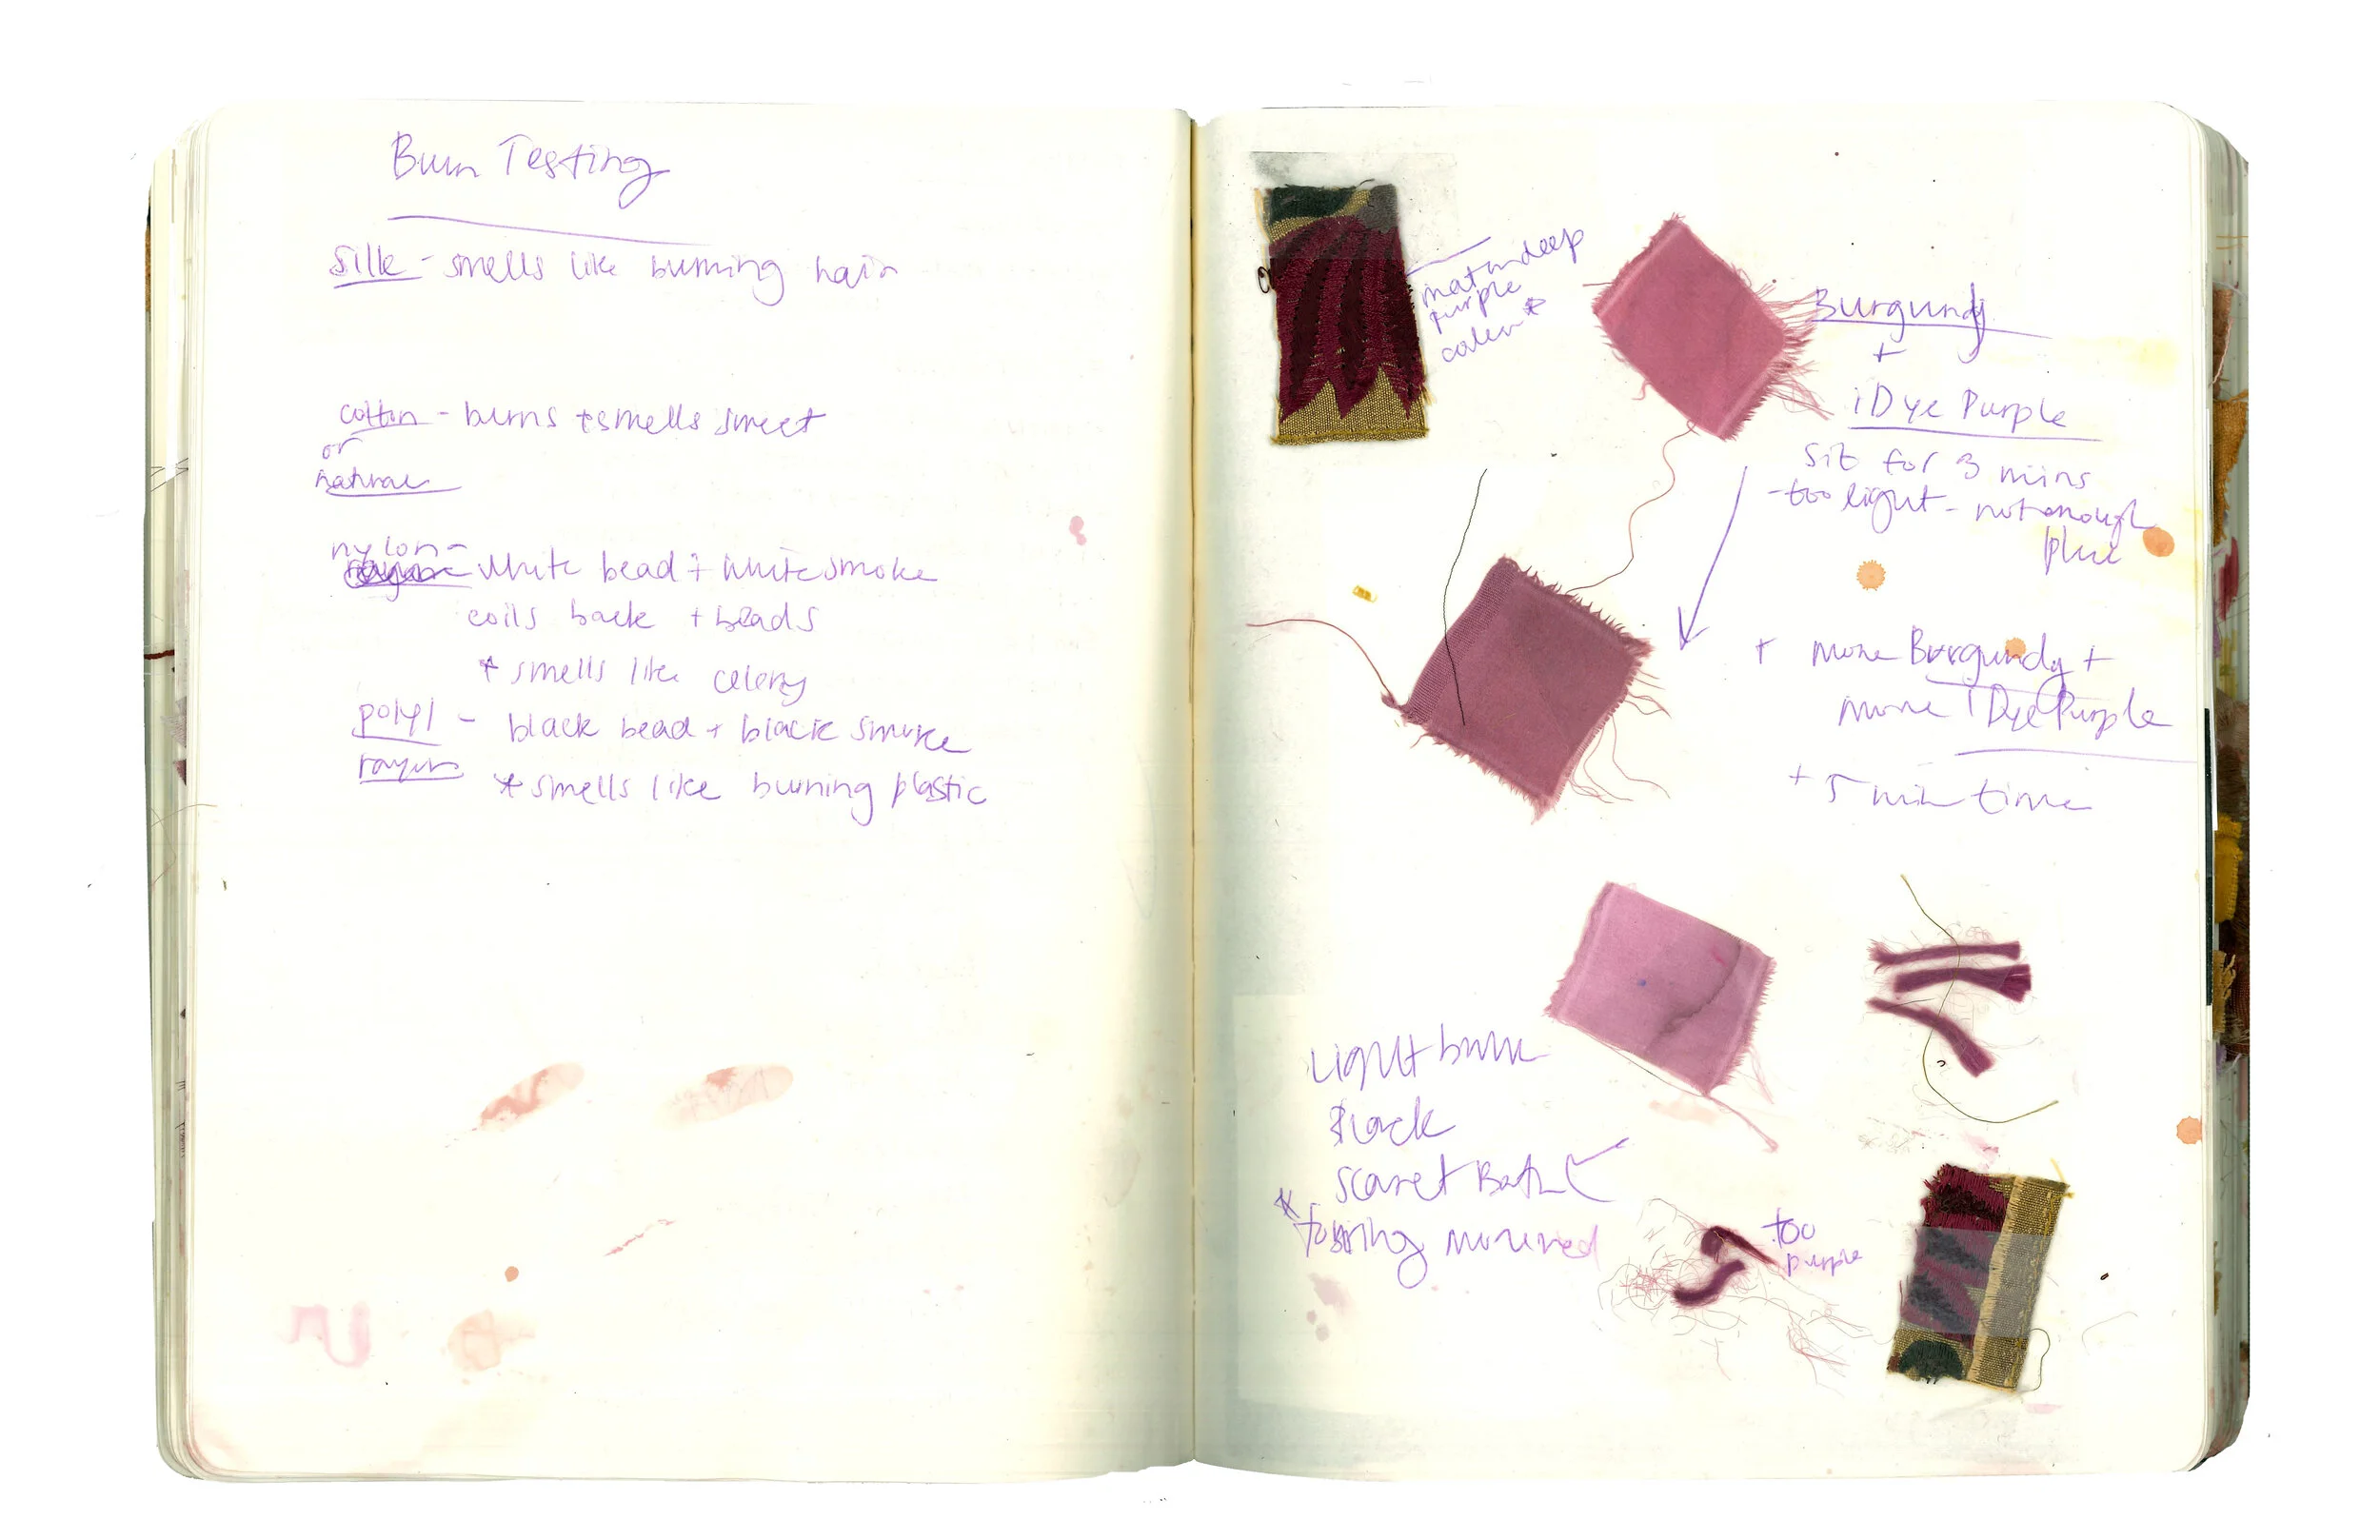 Burn Testing
Silk - smells like burning hair
cotton - burns + smells sweet
or
natural
nylon -
white bead + white smoke
coils back + beads
* smells like celery
poly / - black bead + black smoke
rayon * smells like burning plastic
match deep
purple
color *
Burgundy
+
iDye Purple
Sit for 3 mins
- too light - not enough
blue
+ more Burgundy +
more iDye Purple
+ 5 min time
Light
Black
Scarlet Bath
* more red
too
purple